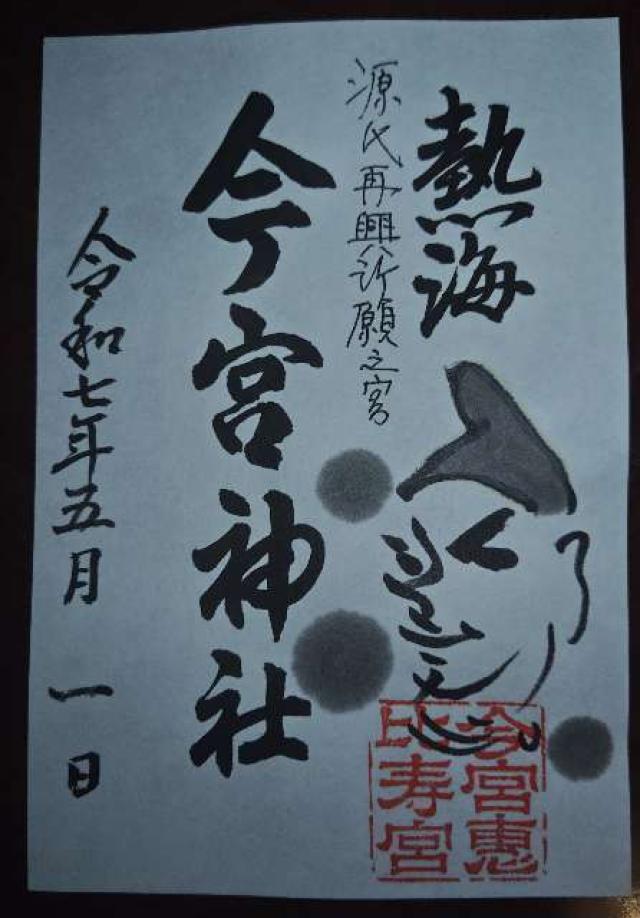 熱海
源氏再興祈願之宮
今宮神社
令和七年五月一日
今宮恵
比寿宮